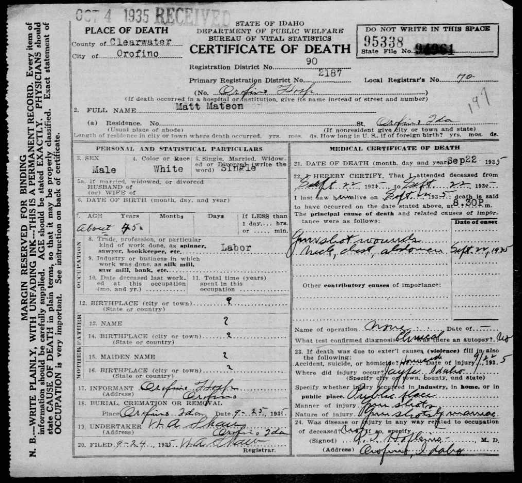 OCT 4 1935 RECEIVED
STATE OF IDAHO
DEPARTMENT OF PUBLIC WELFARE
BUREAU OF VITAL STATISTICS
CERTIFICATE OF DEATH
DO NOT WRITE IN THIS SPACE
95338
State File No.
PLACE OF DEATH
County of Clearwater
City of Orofino
Registration District No. 90
Primary Registration District No. 2187
Local Registrar's No. 70
(No. Orofino Hosp
(If death occurred in a hospital or institution, give its name instead of street and number)
2. FULL NAME Matt Matson
197
(a) Residence. No. St. Orofino, Ida
(Usual place of abode) (If nonresident give city or town and state)
Length of residence in city or town where death occurred. yrs. mos. ds. How long in U. S., if of foreign birth? yrs. mos. ds.
PERSONAL AND STATISTICAL PARTICULARS
3. SEX Male
4. Color or Race White
5. Single, Married, Widowed, or Divorced (write the word) Single
5a. If married, widowed, or divorced
HUSBAND of
(or) WIFE of
6. DATE OF BIRTH (month, day, and year)
AGE Years Months Days If LESS than 1 day, hrs. or min.
About 45
8. Trade, profession, or particular kind of work done, as spinner, sawyer, bookkeeper, etc. Labor
9. Industry or business in which work was done, as silk mill, saw mill, bank, etc.
10. Date deceased last worked at this occupation (month and year)
11. Total time (years) spent in this occupation
12. BIRTHPLACE (city or town) ?
(State or country)
FATHER
13. NAME ?
14. BIRTHPLACE (city or town) ?
(State or country)
MOTHER
15. MAIDEN NAME ?
16. BIRTHPLACE (city or town) ?
(State or country)
17. INFORMANT Orofino Hosp
(Address) Orofino
18. BURIAL, CREMATION OR REMOVAL
Place Orofino Ida Date 9-25 1935
19. UNDERTAKER
(Address) Orofino Ida
20. FILED 9-24 1935
Registrar.
MEDICAL CERTIFICATE OF DEATH
21. DATE OF DEATH (month, day, and year) Sep 22 1935
22. I HEREBY CERTIFY, That I attended deceased from
Sept 22 193 to Sept 22 193
I last saw h alive on Sept 22 193
to have occurred on the date stated above, at 8:30P m.
The principal cause of death and related causes of importance were as follows:
Gunshot wounds
neck, chest, abdomen Sept. 22, 1935
Other contributory causes of importance:
Name of operation None Date of
What test confirmed diagnosis? Clinical Was there an autopsy?
23. If death was due to external causes (violence) fill in also the following:
Accident, suicide, or homicide? Homicide Date of injury 9/22 1935
Where did injury occur? Idaho
(Specify city or town, county, and state)
Specify whether injury occurred in industry, in home, or in public place. Public place
Manner of injury Gun shots
Nature of injury Gun shot
24. Was disease or injury in any way related to occupation of deceased? If so, specify
(Signed) M. D.
(Address) Orofino, Idaho
MARGIN RESERVED FOR BINDING
N. B.—WRITE PLAINLY, WITH UNFADING INK—THIS IS A PERMANENT RECORD. Every item of
information should be carefully supplied. AGE should be stated EXACTLY. PHYSICIANS should
state CAUSE OF DEATH in plain terms, so that it may be properly classified. Exact statement of
OCCUPATION is very important. See instruction on back of certificate.